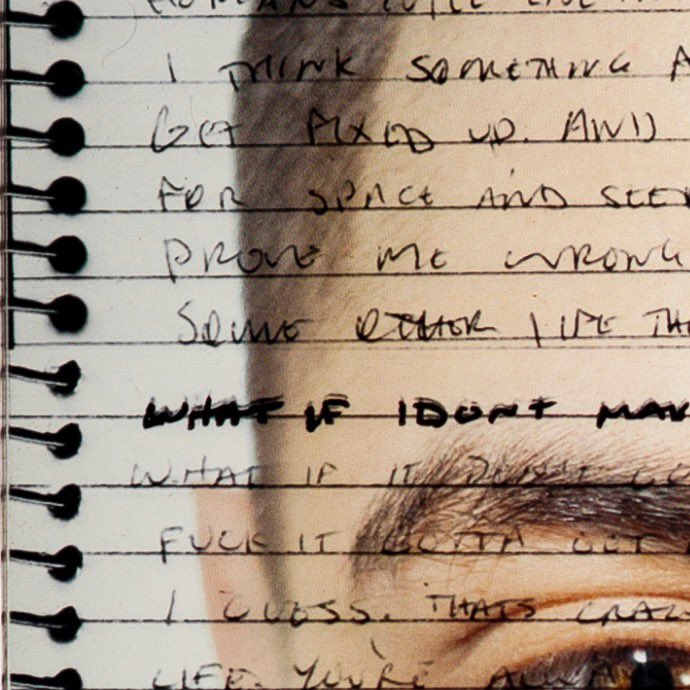 HUMANS WILL LIVE
I THINK SOMETHING A
GET FIXED UP. AND
FOR SPACE AND SEE
PROVE ME WRONG
SOME OTHER LIFE TH
WHAT IF I DONT MA
WHAT IF IT DON'T GE
FUCK IT GOTTA GET
I GUESS. THATS CRAZ
LIFE. YOU'RE